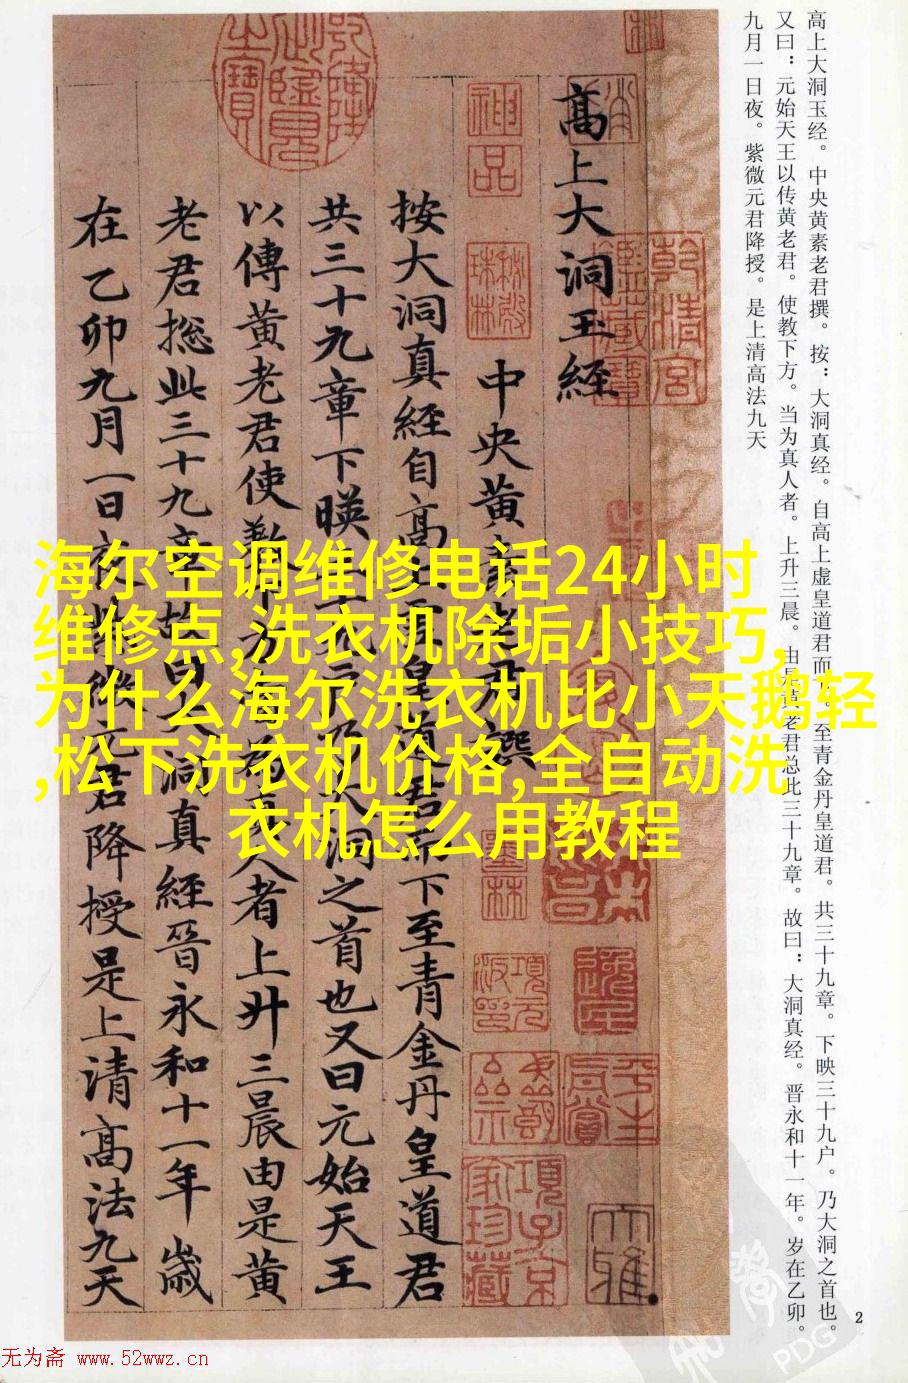 高上大洞玉经。中央黄素老君撰。按：大洞真经。自高上虚皇道君而下。至青金丹皇道君。共三十九章。下映三十九户。乃大洞之首也。
又曰：元始天王以传黄老君。使教下方。当为真人者。上升三晨。由是黄老君总此三十九章。故曰：大洞真经。晋永和十一年。岁在乙卯。
九月一日夜。紫微元君降授。是上清高法九天
高上大洞玉經
中央黄素老君撰
按大洞真經自高上虚皇道君而下至青金丹皇道君
共三十九章下暎三十九户乃大洞之首也又曰元始天王
以傳黄老君使教下方當為真人者上升三晨由是黄
老君捴此三十九章故曰大洞真經晉永和十一年歲
在乙卯九月一日夜紫微元君降授是上清高法九天
神品
乾清宫鑑藏寶
項元汴印
子京
項子京家珍藏
海尔空调维修电话24小时
维修点,洗衣机除垢小技巧,
为什么海尔洗衣机比小天鹅轻
,松下洗衣机价格,全自动洗
衣机怎么用教程
2
PDG
无为斋 www.52wwz.cn